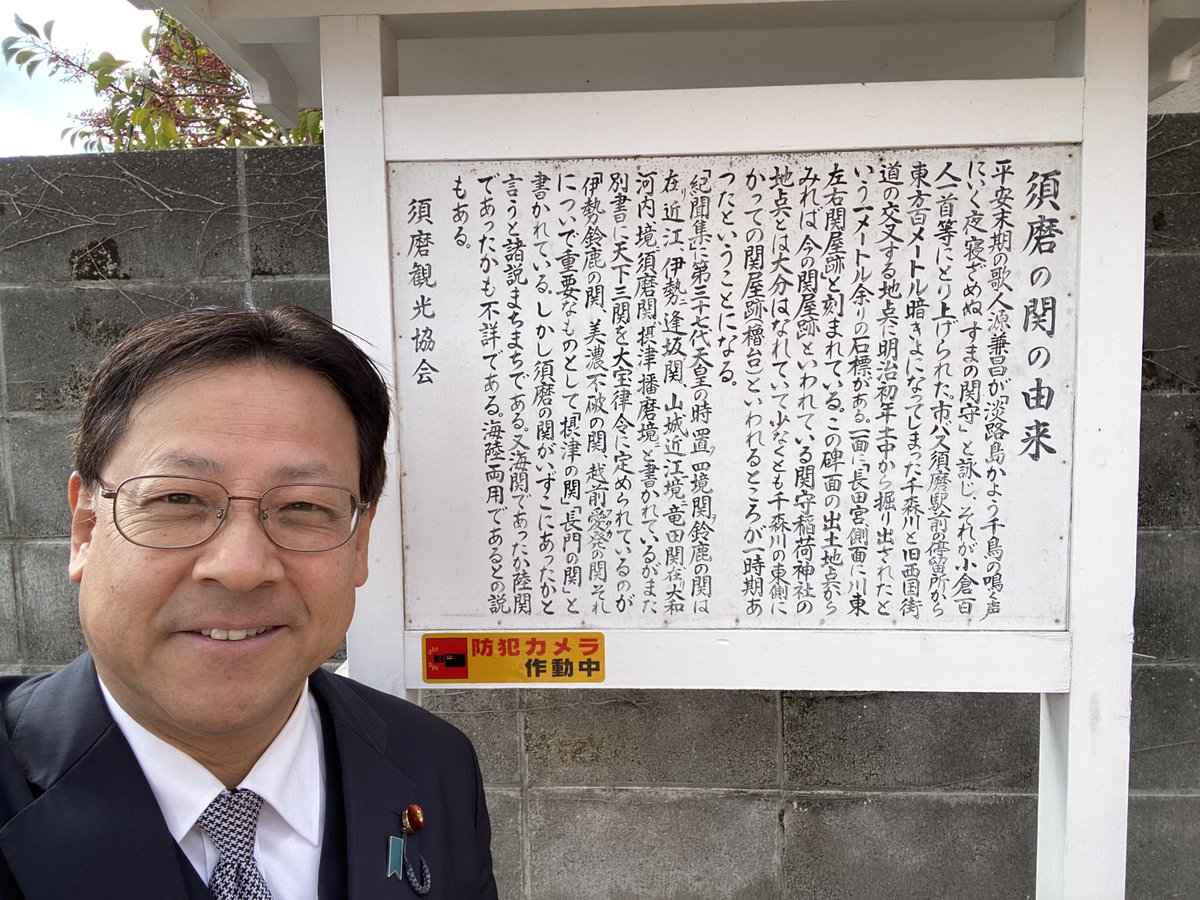 須磨の関の由来
平安末期の歌人源兼昌が「淡路島かよう千鳥の鳴く声
にいく夜寝ざめぬすまの関守」と詠じ、それが小倉百
人一首等にとり上げられた。市バス須磨駅前の停留所から
東方百メートル暗きょになってしまった千森川と旧西国街
道の交叉する地点に明治初年土中から掘り出されたと
いう一メートル余りの石標がある。一面に「長田宮」側面に「川東
左右関屋跡」と刻まれている。この碑面の出土地点から
みれば、今の関屋跡といわれている関守稲荷神社の
地点とは大分はなれていて少なくとも千森川の東側に
かつての関屋跡(櫓台)といわれるところが一時期あ
ったということになる。
「紀聞集」に第三十七代天皇の時置ニ四境関、鈴鹿の関は
在リ近江、伊勢ニ逢坂関、山城近江境ニ竜田関在リ大和
河内ノ境ニ須磨関摂津播磨境ニと書かれているがまた
別書に天下三関を大宝律令に定められているのが
伊勢鈴鹿の関、美濃不破の関、越前愛発の関、それ
について重要なものとして「摂津の関」「長門の関」と
書かれている。しかし須磨の関がいずこにあったかと
言うと諸説まちまちである。又海関であったか陸関
であったかも不詳である。海陸両用であるとの説
もある。
須磨観光協会
防犯カメラ
作動中